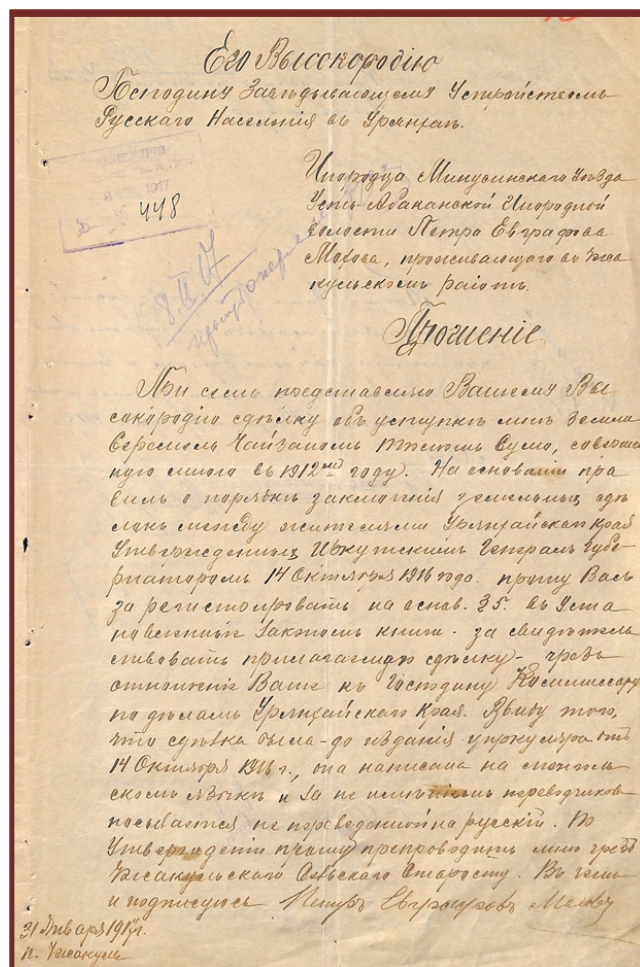 Его Высокородію
Господину Завѣдывающему Устройствомъ
Русскаго Населенія въ Урянхаѣ.
1917
448
Инородца Минусинскаго Уѣзда
Усть-Абаканской Инородной
волости Петра Евграфова
Мохова, проживающаго въ
кульскомъ районѣ.
8.II.17
Прошеніе
При семъ представляю Вашему Вы
сокородію сдѣлку объ уступкѣ мнѣ земли
Чайзаномъ Сумо, совершен
ную мною въ 1912 году. На основаніи пра
вилъ о порядкѣ заключенія земельныхъ сдѣ
локъ между жителями Урянхайскаго края
Утвержденныхъ Иркутскимъ Генералъ Губер
наторомъ 14 Октября 1916 года. прошу Васъ
за регистрировать на основ. §5. въ Уста
новленныя Закономъ книги. за свидѣтель
ствовать прилагаемую сдѣлку - чрезъ
отношеніе Ваше къ Господину Коммиссару
по дѣламъ Урянхайскаго Края. Ввиду того,
что сдѣлка была - до изданія циркуляра отъ
14 Октября 1916 г., она написана на монголь
скомъ языкѣ и за не имѣніемъ переводчиковъ
посылается не переведенной на русскій. По
Утвержденіи прошу препроводить мнѣ чрезъ
Сельскаго Старосту. Въ чемъ
и подписуюсь Петръ Евграфовъ Моховъ
31 Января 1917 г.
п.